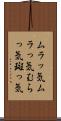 ムラッ気ム
ラっ気むら
っ気斑っ気